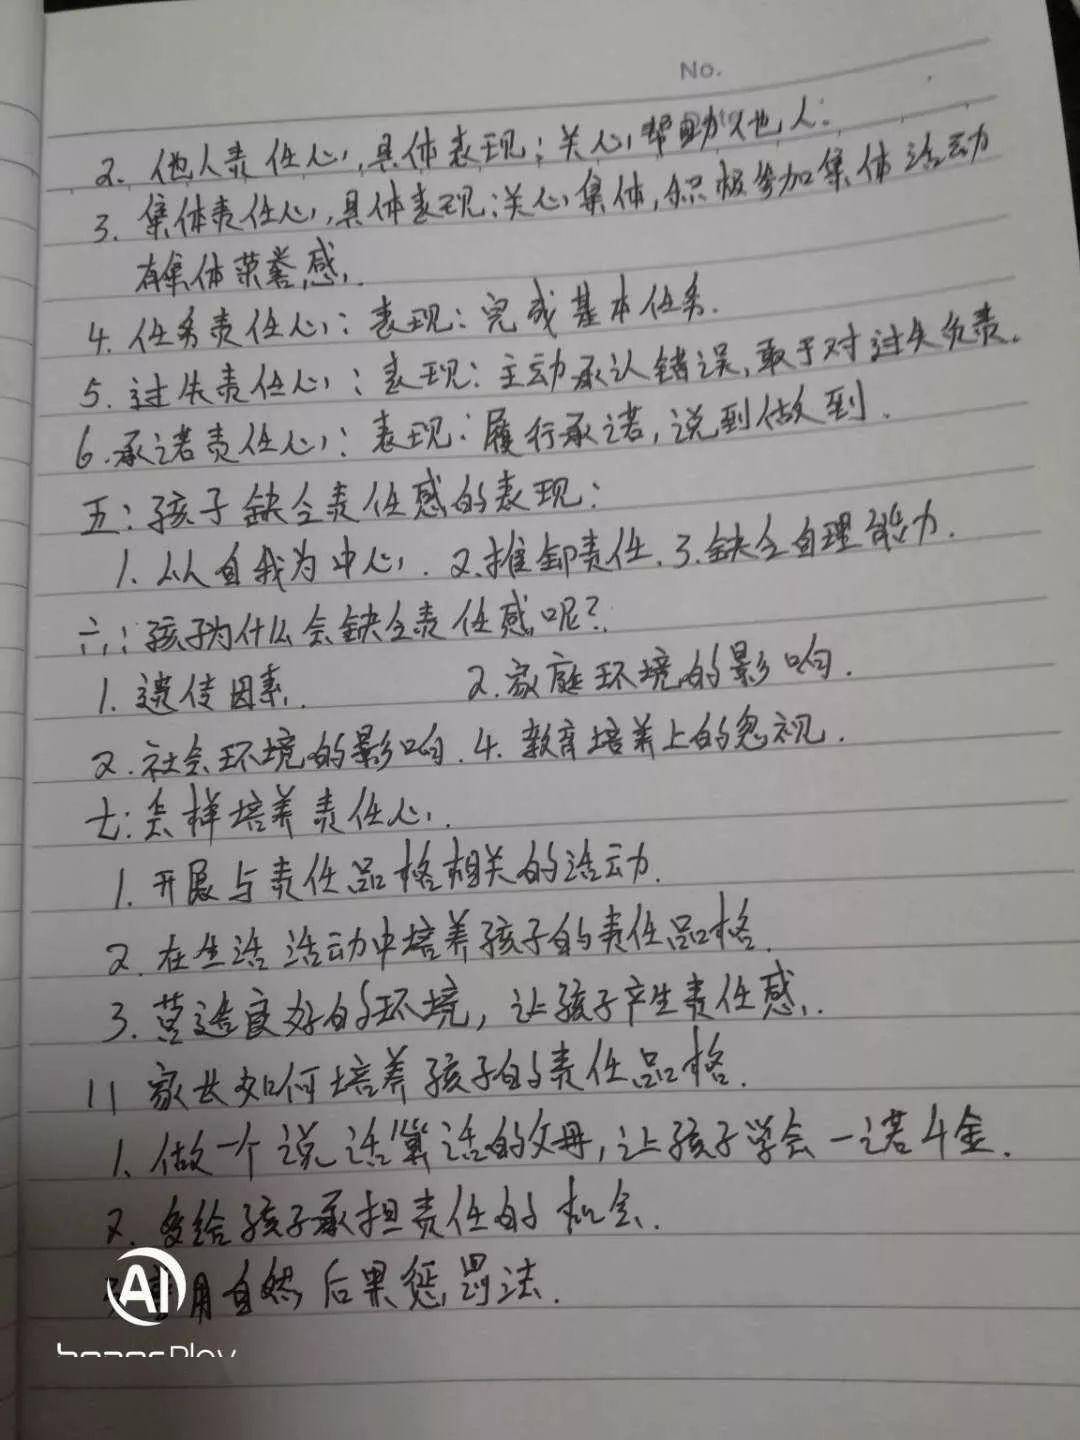 No.
2. 他人责任心,具体表现:关心帮助他人.
3. 集体责任心,具体表现:关心集体,积极参加集体活动
有集体荣誉感.
4. 任务责任心:表现:完成基本任务.
5. 过失责任心:表现:主动承认错误,敢于对过失负责.
6. 承诺责任心:表现:履行承诺,说到做到.
五:孩子缺乏责任感的表现:
1. 以自我为中心. 2.推卸责任. 3.缺乏自理能力.
六:孩子为什么会缺乏责任感呢?
1. 遗传因素. 2.家庭环境的影响.
2. 社会环境的影响. 4. 教育培养上的忽视.
七:怎样培养责任心.
1. 开展与责任品格相关的活动.
2. 在生活活动中培养孩子的责任品格.
3. 营造良好的环境,让孩子产生责任感.
八 家长如何培养孩子的责任品格.
1. 做一个说话算话的父母,让孩子学会一诺千金.
2. 多给孩子承担责任的机会.
用自然后果惩罚法.
AI
honor Play